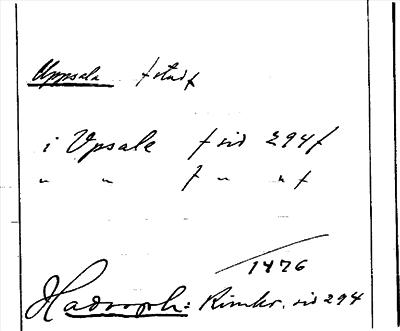 Uppsala / stad /
i Upsale / sid 294 /
" " / " " /
1476
Hadorph: Rimkr. sid 294